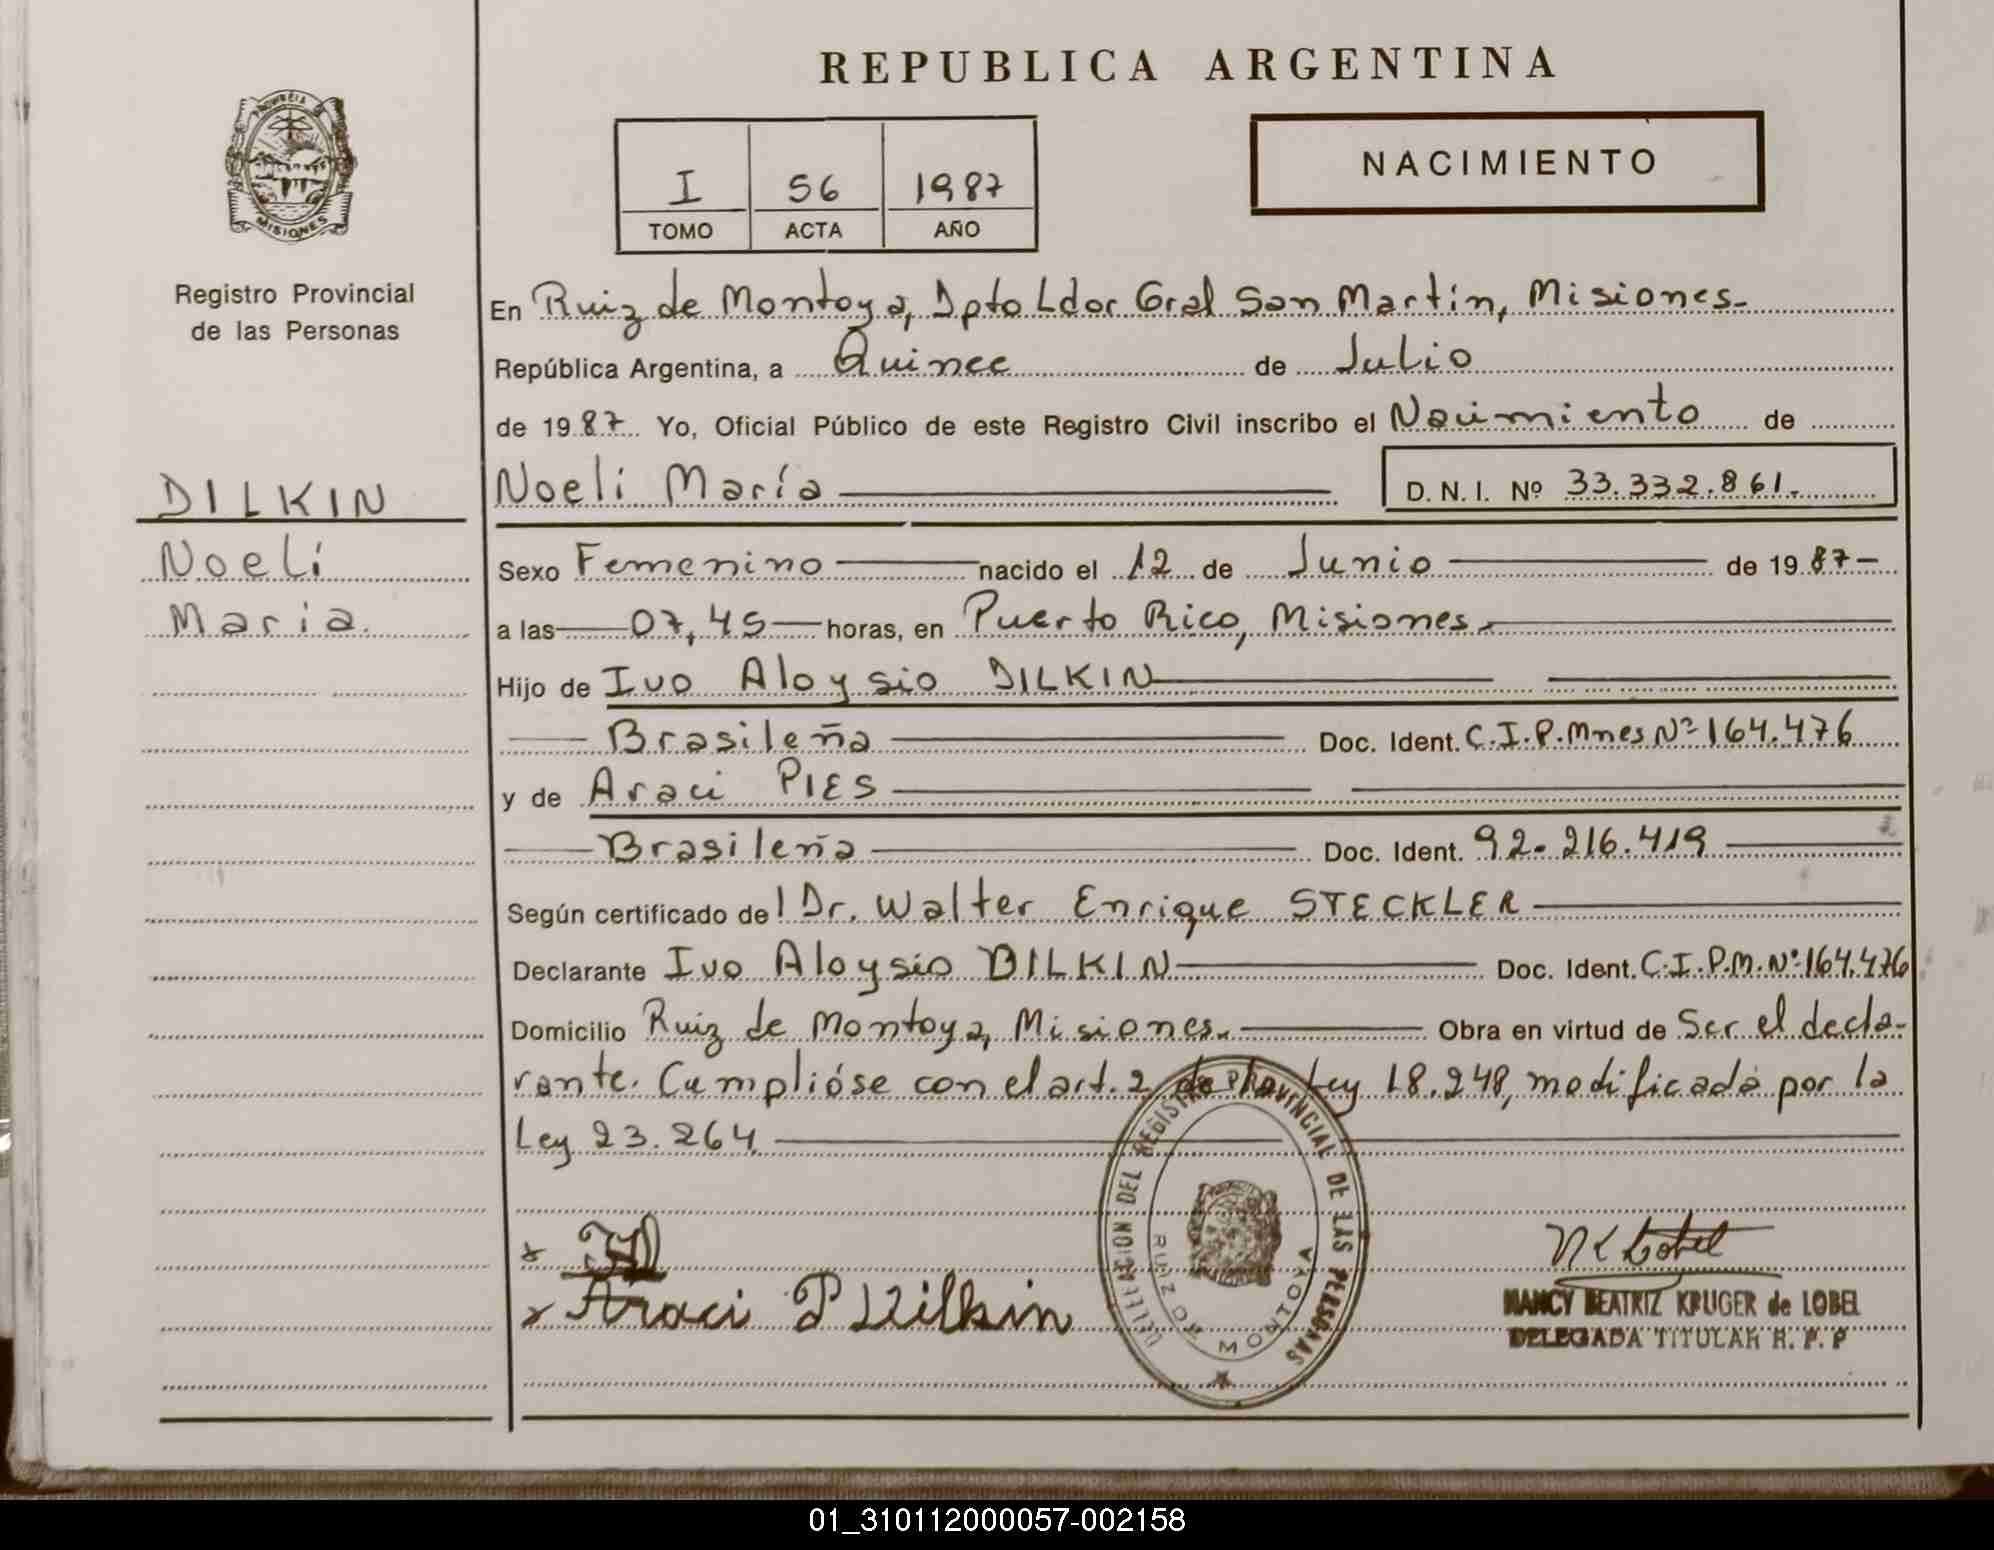 REPUBLICA ARGENTINA
PROVINCIA DE MISIONES
Registro Provincial
de las Personas
I 56 1987
TOMO ACTA AÑO
NACIMIENTO
DILKIN
Noeli
Maria.
En Ruiz de Montoya, Dpto Ldor Gral San Martín, Misiones-
República Argentina, a Quince de Julio
de 1987. Yo, Oficial Público de este Registro Civil inscribo el Nacimiento de
Noeli María D. N. I. Nº 33.332.861.
Sexo Femenino nacido el 12 de Junio de 1987-
a las 07,45 horas, en Puerto Rico, Misiones.
Hijo de Ivo Aloysio DILKIN
Brasileña Doc. Ident. C.I.P.Mnes Nº 164.476
y de Araci PIES
Brasileña Doc. Ident. 92.216.419
Según certificado del Dr. Walter Enrique STECKLER
Declarante Ivo Aloysio DILKIN Doc. Ident. C.I.P.M.Nº 164.476
Domicilio Ruiz de Montoya, Misiones. Obra en virtud de Ser el decla-
rante. Cumplióse con el art. 2 de la Ley 18.248, modificada por la
Ley 23.264.
DELEGACION DEL REGISTRO PROVINCIAL DE LAS PERSONAS
RUIZ DE MONTOYA
Araci P Dilkin
NANCY BEATRIZ KRUGER de LOBEL
DELEGADA TITULAR R. P. P
01_310112000057-002158